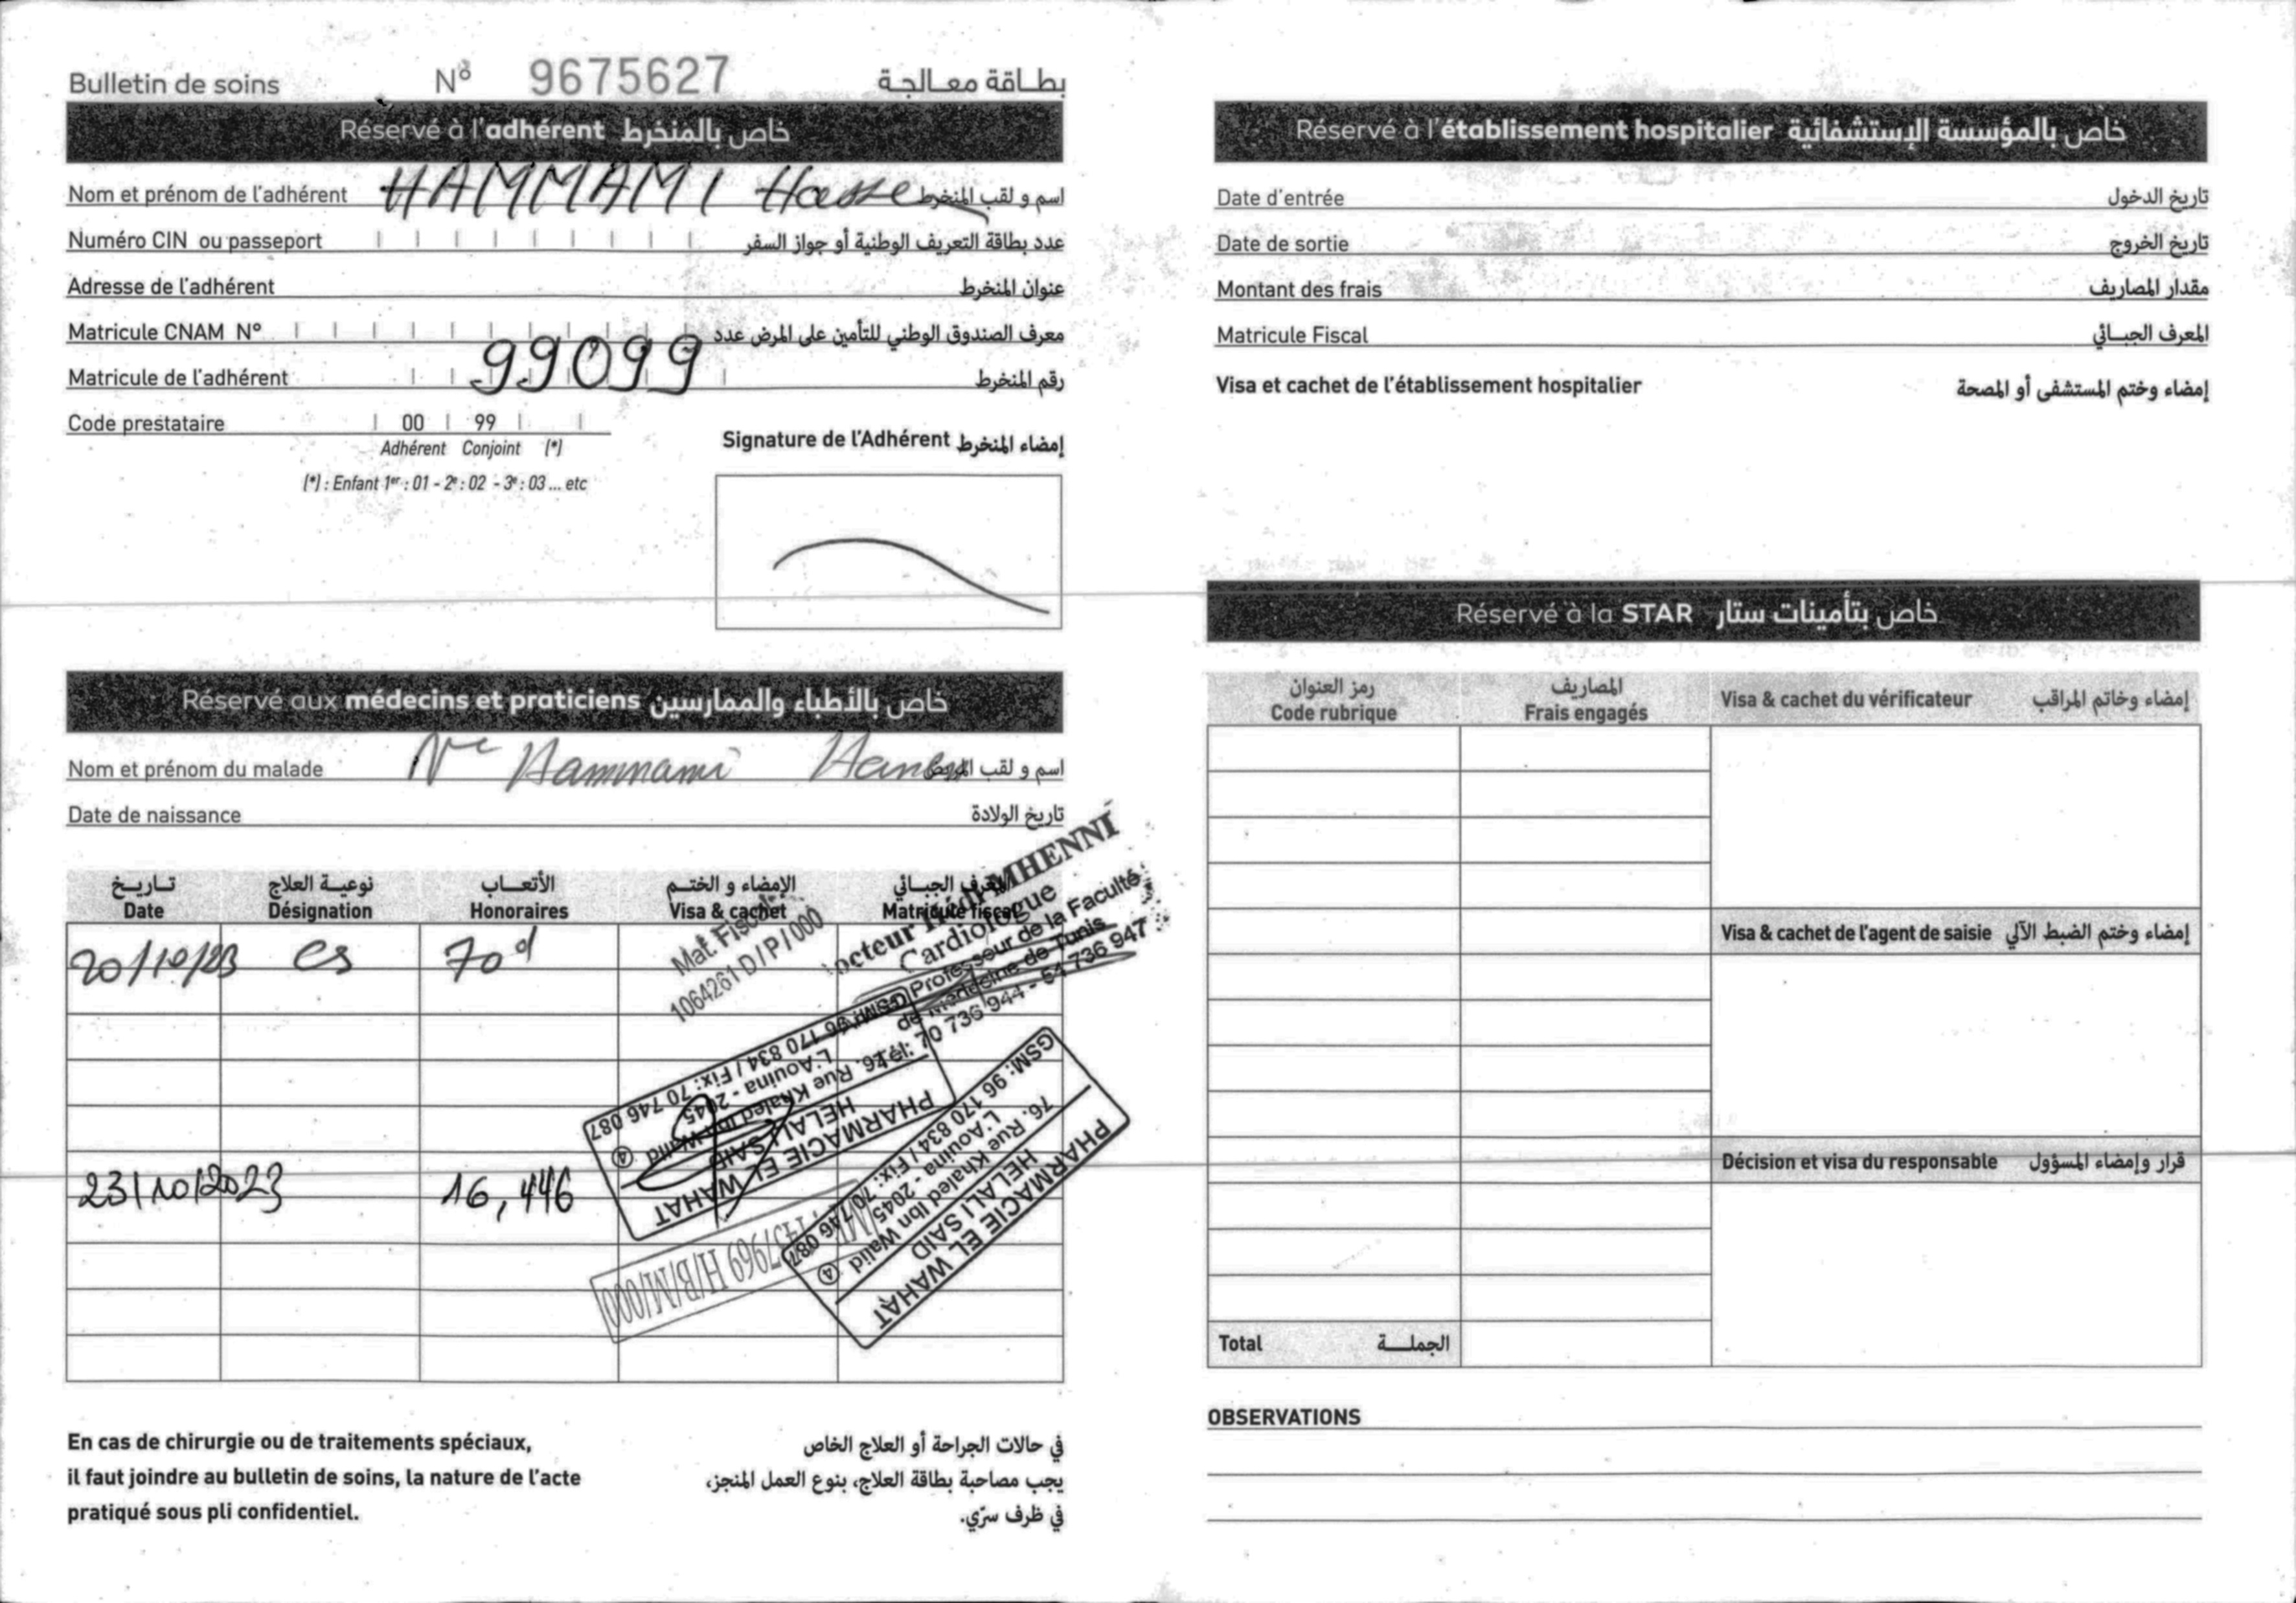 Bulletin de soins N° 9675627 بطاقة معالجة
Réservé à l'adhérent خاص بالمنخرط
Nom et prénom de l'adhérent HAMMAMI اسم و لقب المنخرط
Numéro CIN ou passeport عدد بطاقة التعريف الوطنية أو جواز السفر
Adresse de l'adhérent عنوان المنخرط
Matricule CNAM N° معرف الصندوق الوطني للتأمين على المرض عدد
Matricule de l'adhérent 99099 رقم المنخرط
Code prestataire 00 99
Adhérent Conjoint (*)
(*) : Enfant 1er : 01 - 2e : 02 - 3e : 03 ... etc
Signature de l'Adhérent إمضاء المنخرط
Réservé aux médecins et praticiens خاص بالأطباء والممارسين
Nom et prénom du malade Hammami اسم و لقب المريض
Date de naissance تاريخ الولادة
تاريخ نوعية العلاج الأتعاب الإمضاء و الختم المعرف الجبائي
Date Désignation Honoraires Visa & cachet Matricule fiscal
20/10/23 cs 70d
Mat. Fiscal
1064261 D/P/000
MHENNI
Cardiologue
Professeur de la Faculté
de Médecine de Tunis
Tél: 70 736 944 - 54 736 947
23/10/2023 16,446
PHARMACIE EL WAHAT
HELALI SAID
76. Rue Khaled Ibn Walid
L'Aouina - 2045
GSM: 96 170 834 / Fix: 70 746 087
PHARMACIE EL WAHAT
HELALI SAID
76. Rue Khaled Ibn Walid
L'Aouina - 2045
GSM: 96 170 834 / Fix: 70 746 087
H/B/M/000
En cas de chirurgie ou de traitements spéciaux,
il faut joindre au bulletin de soins, la nature de l'acte
pratiqué sous pli confidentiel.
في حالات الجراحة أو العلاج الخاص
يجب مصاحبة بطاقة العلاج، بنوع العمل المنجز،
في ظرف سرّي.
Réservé à l'établissement hospitalier خاص بالمؤسسة الإستشفائية
Date d'entrée تاريخ الدخول
Date de sortie تاريخ الخروج
Montant des frais مقدار المصاريف
Matricule Fiscal المعرف الجبائي
Visa et cachet de l'établissement hospitalier إمضاء وختم المستشفى أو المصحة
Réservé à la STAR خاص بتأمينات ستار
رمز العنوان المصاريف
Code rubrique Frais engagés
Visa & cachet du vérificateur إمضاء وخاتم المراقب
Visa & cachet de l'agent de saisie إمضاء وختم الضبط الآلي
Décision et visa du responsable قرار وإمضاء المسؤول
Total الجملة
OBSERVATIONS